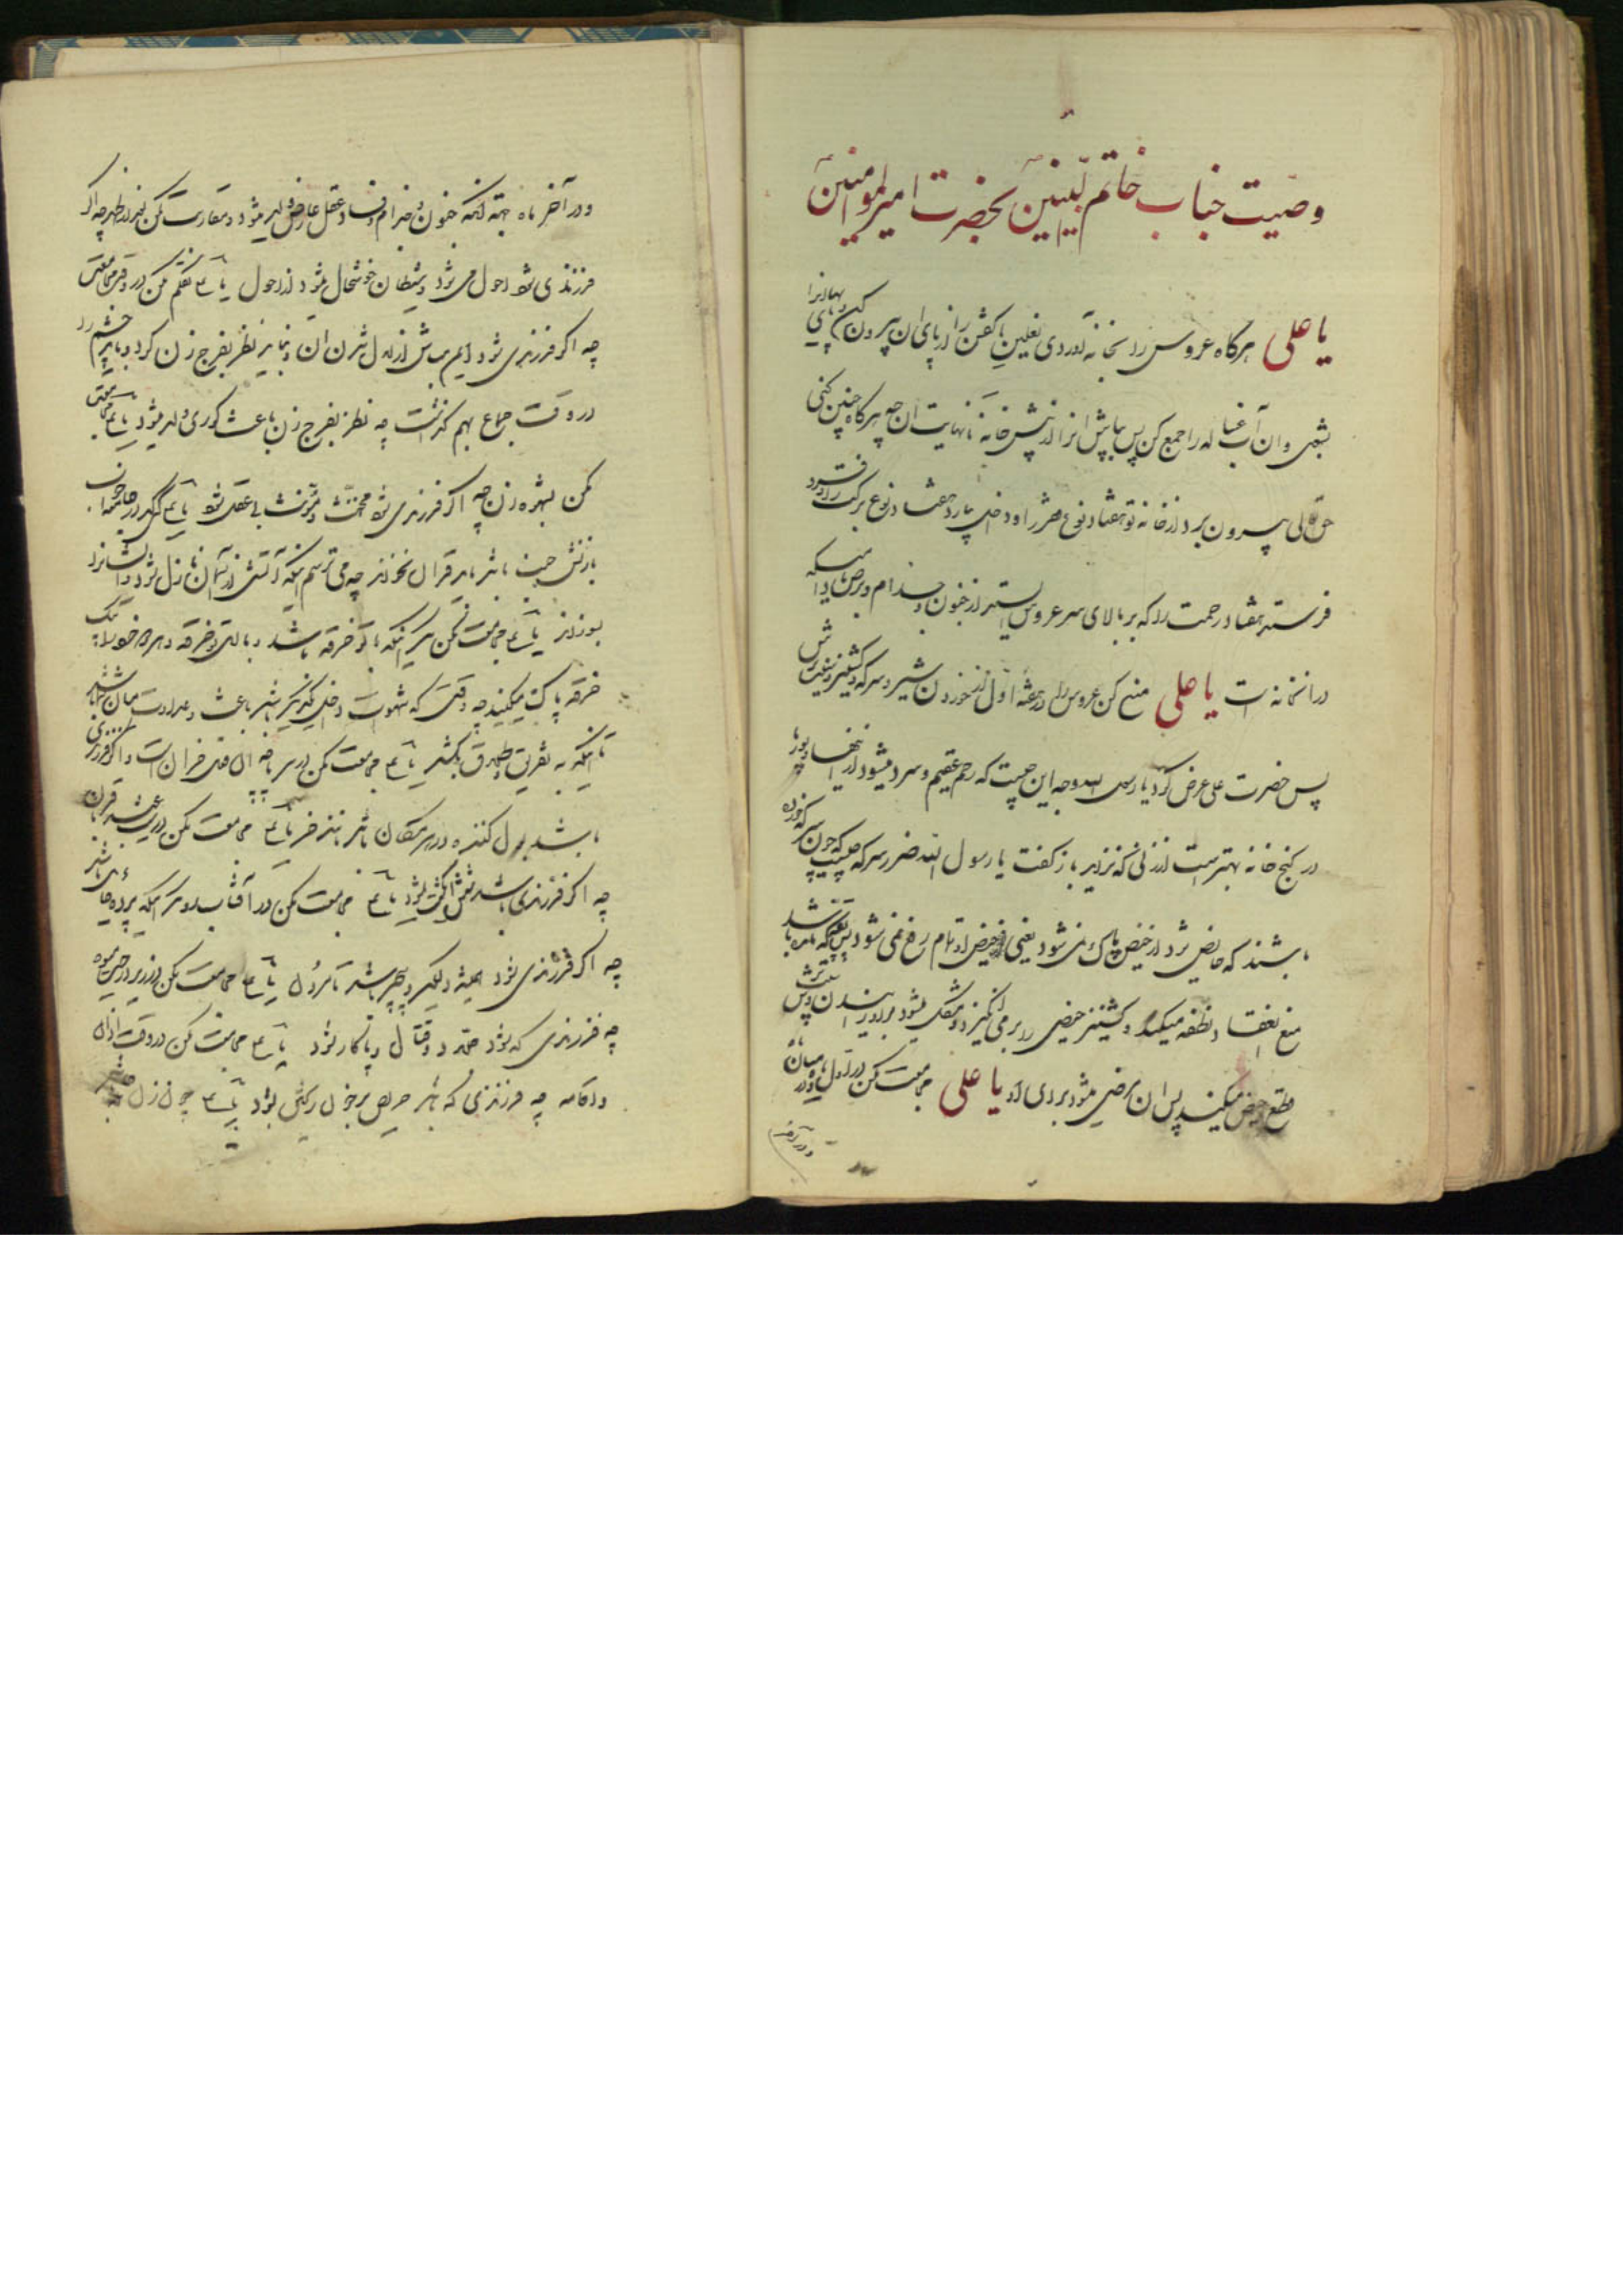 وصیت جناب خاتم النبیین بحضرت امیرالمومنین
یا علی هرکاه عروس را بخانه آوردی نعلین یا کفش را از پای ان بیرون کن و پای
بشوی و ان آب غساله را جمع کن پس بپاش انرا از پیش خانه تا نهایت ان چه هرکاه چنین کنی
حق تعالی بیرون برد از خانه تو هفتاد نوع فقر را و داخل سازد هفتاد نوع برکت را و فرستد
فرستد هفتاد رحمت را که بر بالای سر عروس از جنون و جذام و برص مادامیکه
در انخانه است یا علی منع کن عروس را در هفته اول از خوردن شیر و سرکه و کشنیز و سیب ترش
پس حضرت علی عرض کرد یا رسول الله وجه این چیست که رحم عقیم و سرد میشود از اینها و بوریا
در کنج خانه بهتر است از زنی که نزاید باز کفت یا رسول الله ضرر سرکه چیست که چون سرکه خورده
باشند که حایض شود از حیض پاک نمی شود یعنی حیض او تمام رفع نمی شود
منع انعقاد نطفه میکند و کشنیز حیض را بر می انگیزد و مشکل میشود بر او زائیدن و سیب ترش
قطع حیض میکند پس ان مرضی میشود برای او یا علی مجامعت مکن در اول ماه و میان
و در آخر
و در آخر ماه بجهة آنکه جنون و جذام و فساد عقل عارض ولد میشود و مقاربت مکن بعد از ظهر چه اگر
فرزندی شود احول می شود و شیطان خوشحال میشود از احول یا علی تکلم مکن در وقت مجامعت
چه اکر فرزندی شود ایمن مباش از لال شدن ان و نباید نظر بفرج زن کرد و باید چشم را
در وقت جماع بهم گذاشت چه نظر بفرج زن باعث کوری ولد میشود یا علی مجامعت
مکن بشهوة زن چه اکر فرزندی شود مخنث و مؤنث بی عقل شود یا علی هرکه در جامه خواب
بازنش جنب باشد باید قرآن نخواند چه می ترسم اینکه آتش از آسمان نازل شود و ایشانرا
بسوزاند یا علی مجامعت مکن مگر اینکه با تو خرقه باشد و با زن تو خرقه و هر دو خود را بیک
خرقه پاک میکنید چه وقتی که شهوت داخل یکدیگر باشد باعث عداوت میان شما باشد
تا اینکه به تفریق و طلاق بکشد یا علی مجامعت مکن در سر پا چه ان فعل خران است و اگر فرزندی
باشد بول کننده در هر مکان باشد مانند خر یا علی مجامعت مکن در شب عید قربان
چه اکر فرزندی باشد شش انگشت شود یا علی مجامعت مکن در آفتاب مگر اینکه پرده حائل باشد
چه اکر فرزندی شود همیشه دلگیر و فقیر باشد تا مردن یا علی مجامعت مکن در زیر درخت میوه
چه فرزندی که شود جلاد و قتال و ناپاکار شود یا علی مجامعت مکن در وقت اذان
و اقامه چه فرزندی که باشد حریص بر خون ریختن بود یا علی چون زن حامله